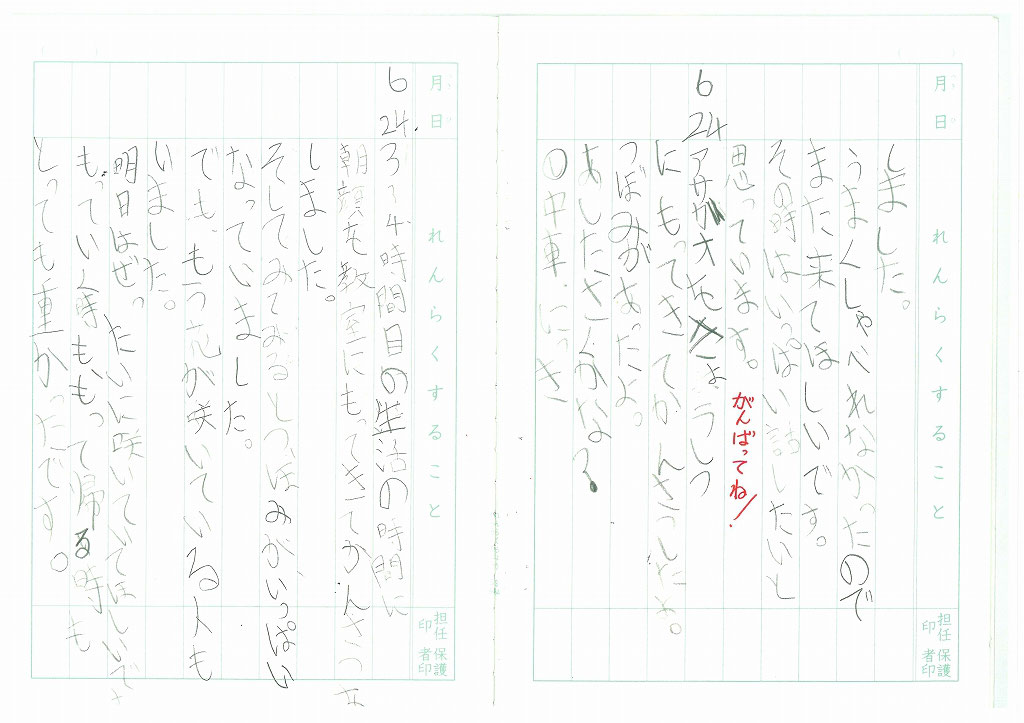 月 日
れんらくすること
担任印
保護者印
しました。
うまくしゃべれなかったので
また来てほしいです。
その時はいっぱい話したいと
思っています。
がんばってね!
6 24
アサガオを教ようしつ
にもってきてかんさつしたよ。
つぼみがあったよ。
あしたさくかな?
①中車 にっき
月 日
れんらくすること
担任印
保護者印
6 24
3、4時間目の生活の時間に
朝顔を教室にもってきてかんさつを
しました。
そしてみてみるとつぼみがいっぱい
なっていました。
でも、もう花が咲いている人も
いました。
明日はぜったいに咲いていてほしいです
もっていく時も、もって帰る時も
とっても重かったです。